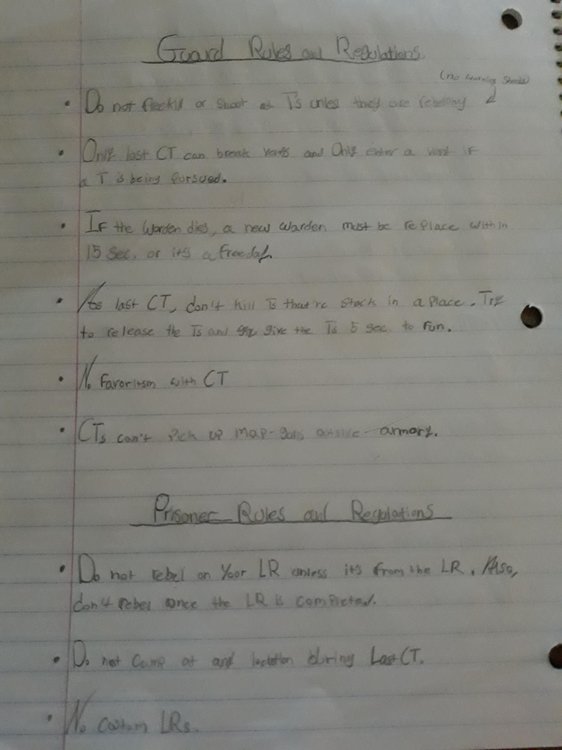 Guard Rules and Regulations
(No warning shots)
• Do not freekill or shoot at Ts unles they are rebelling
• Only last CT can break vents and Only enter a vent if
a T is being pursued.
• If the Warden dies, a new warden must be replace within
15 Sec. or its a freeday.
• As last CT, don't kill Ts that're stuck in a place. Try
to release the Ts and give the Ts 5 sec. to run.
• No Favoritsm with CT
• CTs can't Pick up map-guns outside armory.
Prisoner Rules and Regulations
• Do not rebel on Your LR unless its from the LR. Also,
don't rebel once the LR is completed.
• Do not Camp at and loctation during Last CT.
• No Custom LRs.